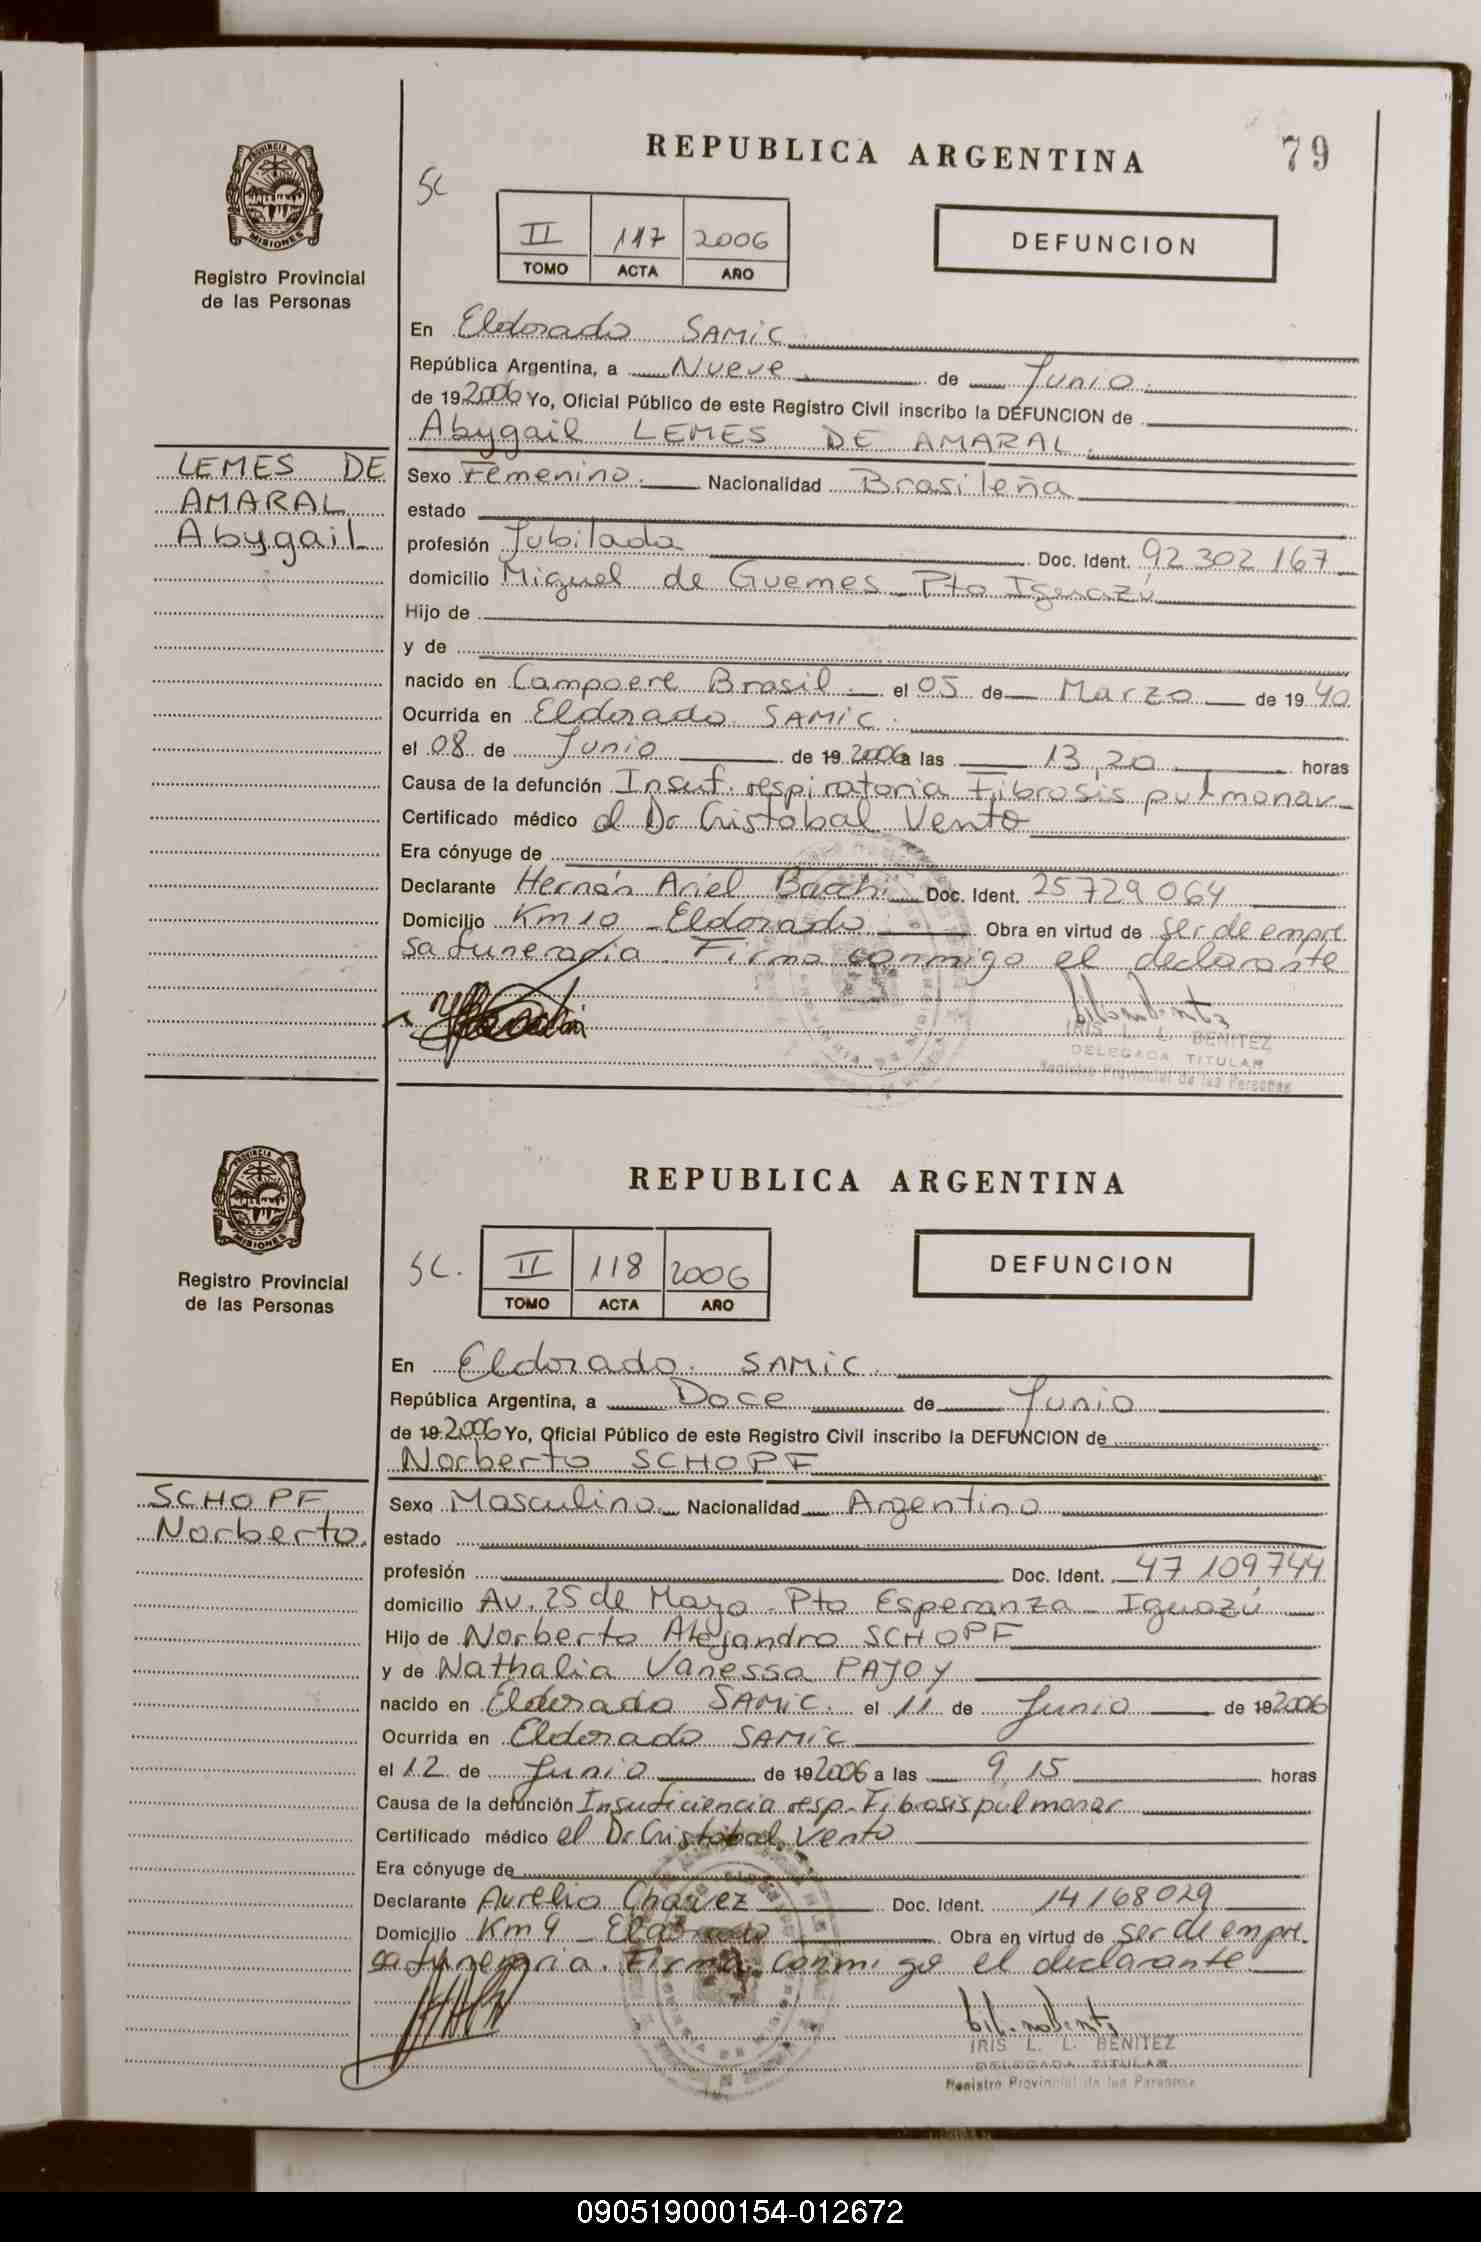 REPUBLICA ARGENTINA
79
PROVINCIA MISIONES
Registro Provincial
de las Personas
SC
II 117 2006
TOMO ACTA AÑO
DEFUNCION
En Eldorado SAMIC
República Argentina, a Nueve de Junio
de 192006 Yo, Oficial Público de este Registro Civil inscribo la DEFUNCION de
Abygail LEMES DE AMARAL
LEMES DE
AMARAL
Abygail
Sexo Femenino. Nacionalidad Brasileña
estado
profesión Jubilada Doc. Ident. 92 302 167
domicilio Miguel de Guemes - Pto Iguazú
Hijo de
y de
nacido en Campoere Brasil. el 05 de Marzo de 1940
Ocurrida en Eldorado SAMIC.
el 08 de Junio de 19 2006 a las 13,20 horas
Causa de la defunción Insuf. respiratoria Fibrosis pulmonar
Certificado médico el Dr Cristobal Vento
Era cónyuge de
Declarante Hernán Ariel Bacchi Doc. Ident. 25 729 064
Domicilio Km 10 - Eldorado Obra en virtud de ser de empre
sa funeraria. Firma conmigo el declarante
IRIS L. L. BENITEZ
DELEGADA TITULAR
Registro Provincial de las Personas
REPUBLICA ARGENTINA
PROVINCIA MISIONES
Registro Provincial
de las Personas
SC.
II 118 2006
TOMO ACTA AÑO
DEFUNCION
En Eldorado. SAMIC.
República Argentina, a Doce de Junio
de 19 2006 Yo, Oficial Público de este Registro Civil inscribo la DEFUNCION de
Norberto SCHOPF
SCHOPF
Norberto.
Sexo Masculino. Nacionalidad Argentino
estado
profesión Doc. Ident. 47 109 744
domicilio Av. 25 de Mayo - Pto Esperanza - Iguazú
Hijo de Norberto Alejandro SCHOPF
y de Nathalia Vanessa PAYOY
nacido en Eldorado SAMIC. el 11 de Junio de 192006
Ocurrida en Eldorado SAMIC
el 12 de Junio de 192006 a las 9,15 horas
Causa de la defunción Insuficiencia resp- Fibrosis pulmonar
Certificado médico el Dr Cristobal Vento
Era cónyuge de
Declarante Aurelio Chavez Doc. Ident. 14 168 029
Domicilio Km 9 - Eldorado Obra en virtud de ser de empre-
sa funeraria. Firma conmigo el declarante
IRIS L. L. BENITEZ
DELEGADA TITULAR
Registro Provincial de las Personas
090519000154-012672